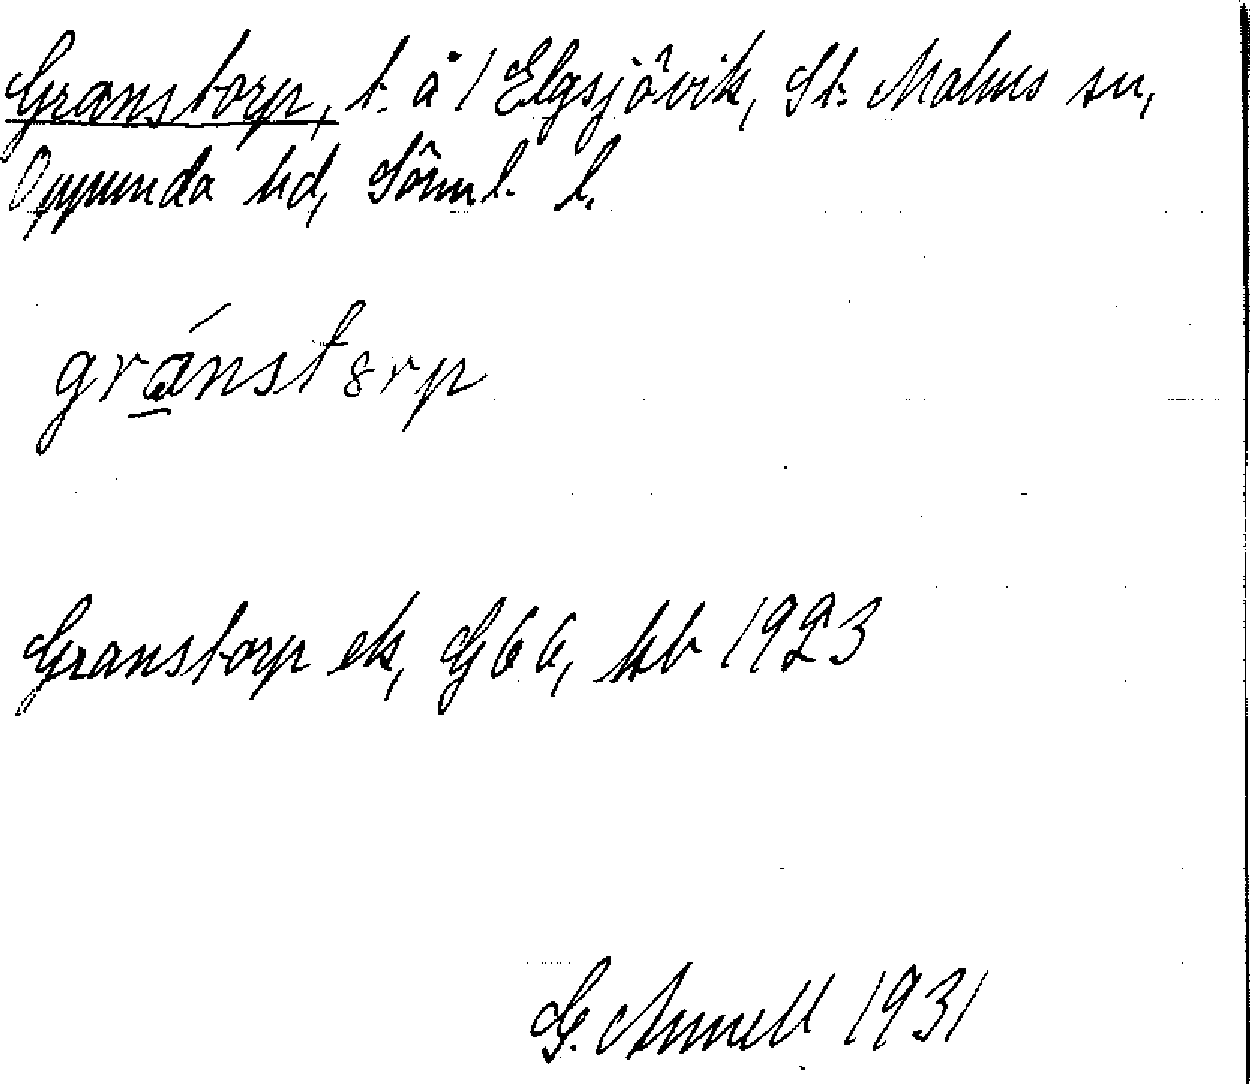 Granstorp, t. å 1 Elgsjövik, St. Malms sn,
Oppunda hd, Sörml. l.
gránstərp
Granstorp ek, G66, hb 1923
G. Annell 1931